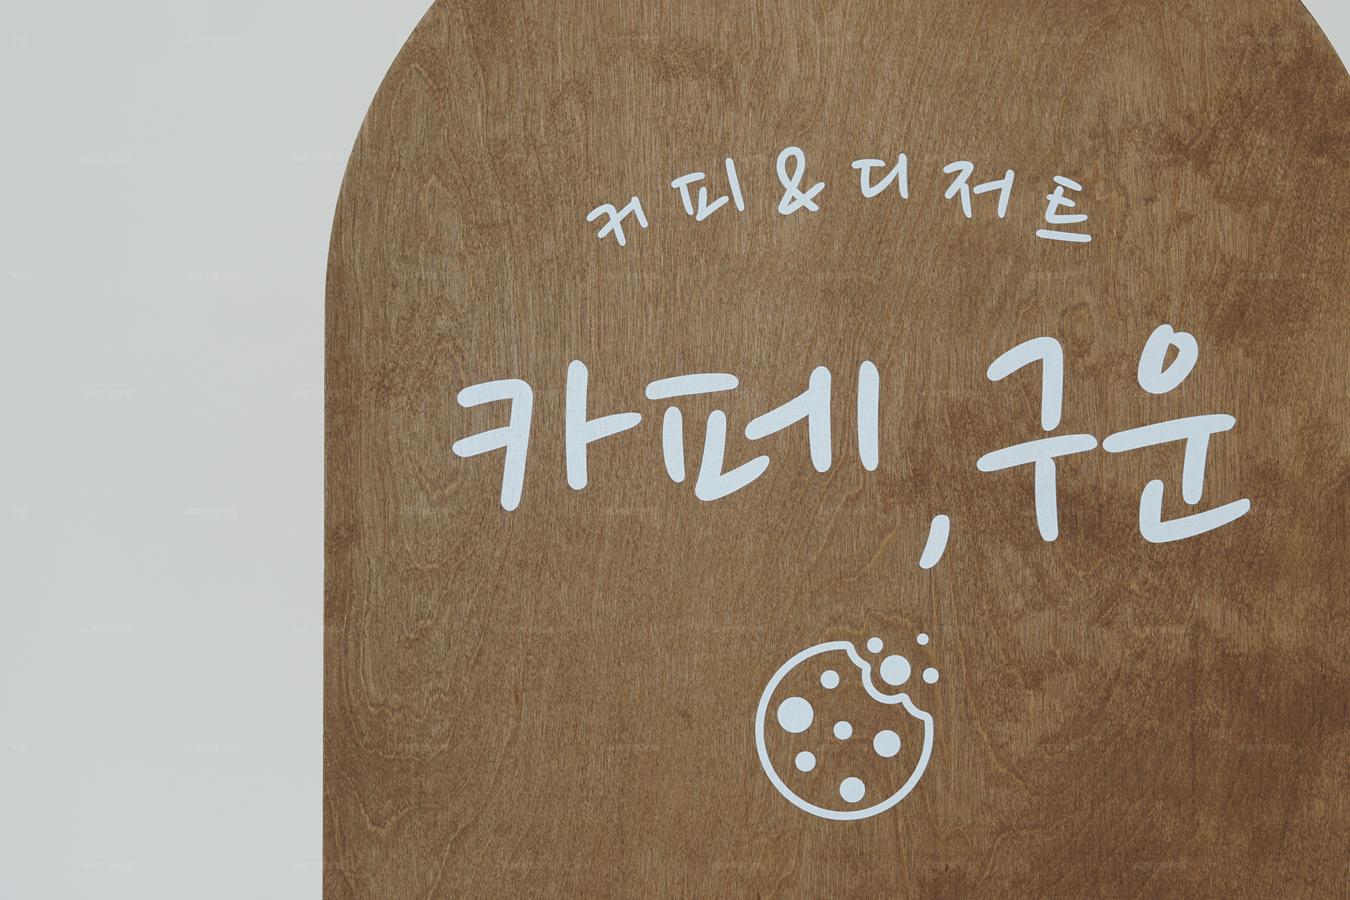 커피&디저트
카페,구운